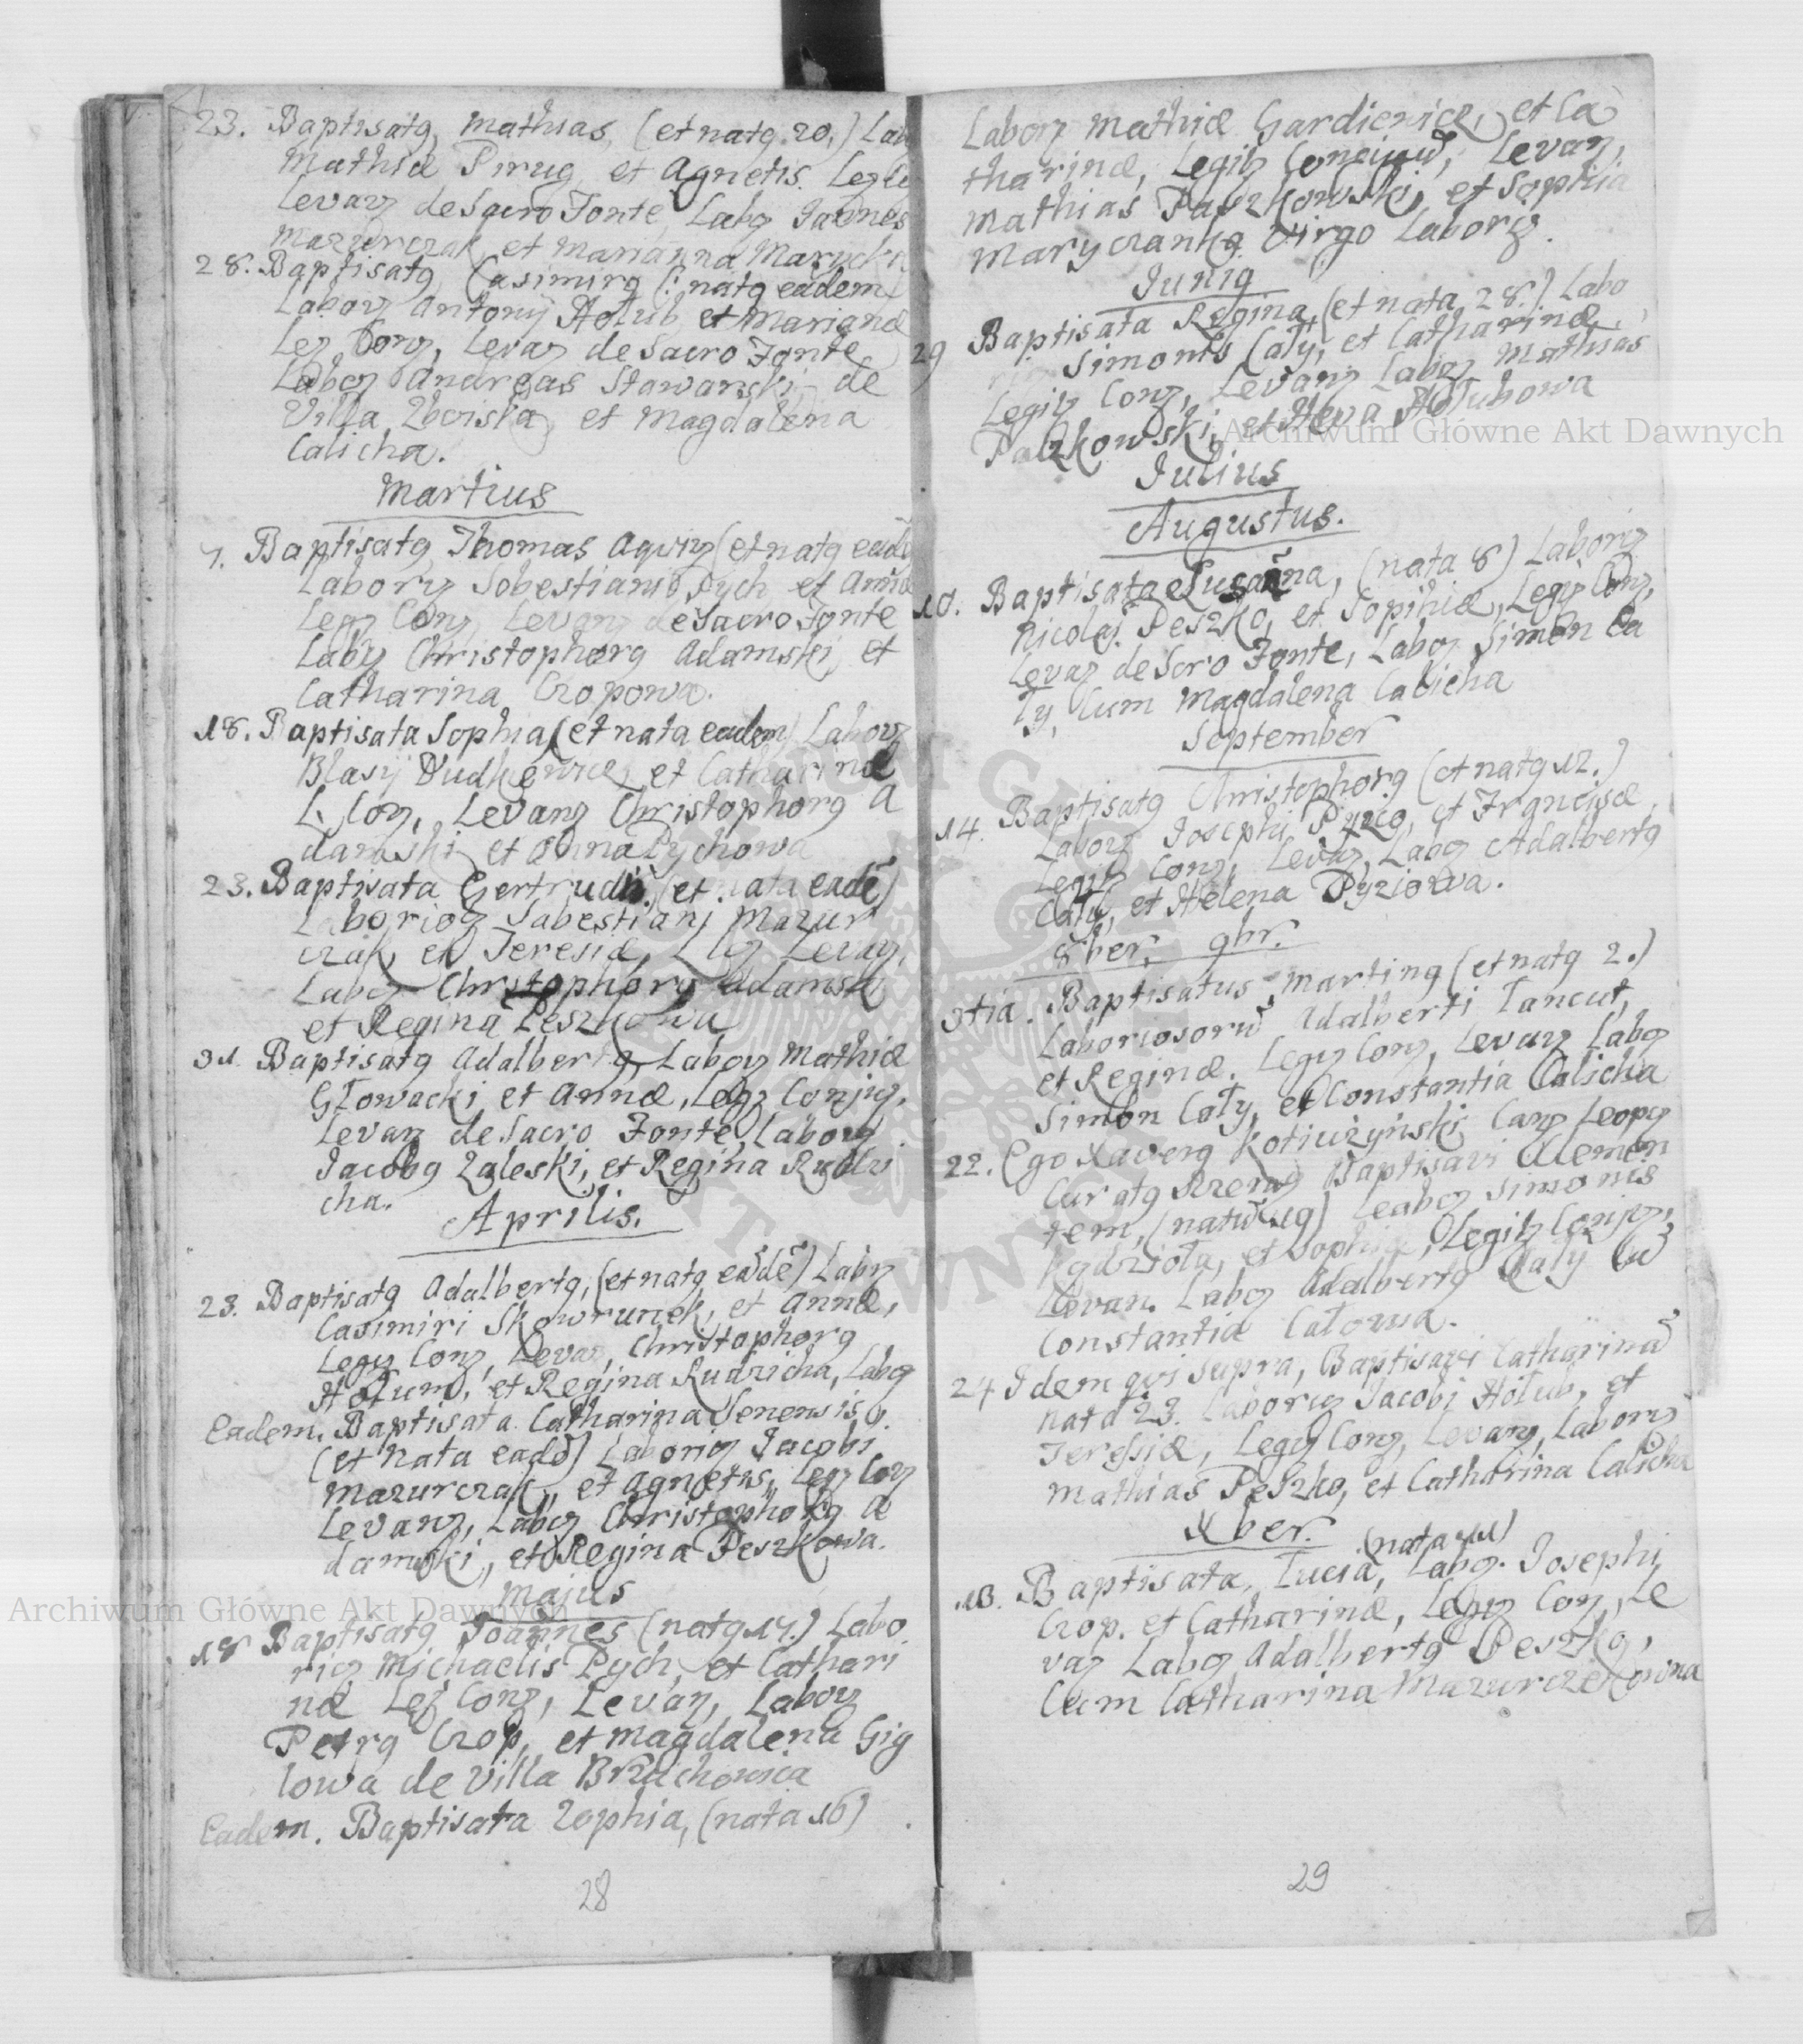 23. Baptisatg, Mathias, (et natg 20,) Lab
Mathiæ Pirug et Agnetis. Leg
Levarz de Sacro Fonte, Labg Joannes
Mazurczak et Marianna
28. Baptisatg Casimirg (: natg eadem
Laborz Antonij Hołub, et Marianæ
Leg Conz, Levaz de Sacro Fonte
Labg Andreas Stawarski, de
Villa Zboiska, et Magdalena
Calicha.
Martius
7. Baptisatg Thomas (et natg
Laborz Sobestiani Pych et Annæ
Leg Conz, Levanz de Sacro Fonte
Labg Christophorg Adamski, et
Catharina Cropowa.
18. Baptisata Sophia, (et nata eadem) Laborz
Blasij et Catharinæ
L. Con, Levanz Christophorg A
damski et Anna Pychowa
23. Baptisata Gertrudis, (et nata eadē)
Laboriog Sabestiani Mazur
czak, et Teresiæ, L Leg Levaz,
Labg Christophorg Adamski
et Regina Peszkowa
31 Baptisatg Adalbertg Laborz Mathiæ
Głowacki et Annæ, Leg Conjig,
Levaz de Sacro Fonte, Laborg
Jacobg Zaleski, et Regina Rudzi
cha.
Aprilis.
23. Baptisatg Adalbertg, (et natg eadē) Labrz
Casimiri Skowrunek, et Annæ,
Legiz Conz, Levaz, Christophorg
et Regina Rudzicha, Labg
Eadem. Baptisata Catharina Senensis,
(et nata eadē) Laborig Jacobi
Mazurczak, et Agnetis, Leg Conz
Levanz, Labg Christophorg A
damski, et Regina Peszkowa.
Majus
18 Baptisatg Joannes (natg 17.) Labo
rig Michaelis Pych, et Cathari
næ Leg Conz, Levaz, Laborz
Petrg Crop, et Magdalena Gig
lowa de Villa Brzuchowica
Eadem. Baptisata Zophia, (nata 16)
28
Laborz Mathiæ Gardiewicz, et Ca
tharinæ, Legib Levaz,
Mathias Paszkowski, et Sophia
Maryczanka Virgo Laborg.
Junig
29 Baptisata Regina, (et nata 28.) Labo
Simonis Cały, et Catharinæ,
Legib Conz, Levanz Labg Mathias
Paszkowski, et Heva Hołubowa
Julius
Augustus.
10. Baptisata Susanna, (nata 8) Laborig
Nicolaj Peszko, et Sophiæ, Legib Conz,
Levaz de Scro Fonte, Labg Simon Ca
ły, Cum Magdalena Calicha
September
14. Baptisatg Christophorg (et natg 12.)
Laborz Josephi et Franciscæ,
Legib Conz, Levaz Labg Adalbertg
Cały, et Helena Pyziowa.
8ber, 9br.
3tia. Baptisatus Marting (et natg 2.)
Laboriosorū Adalberti Tancut,
et Reginæ. Legiz Conz, Levaz Labg
Simon Cały, et Constantia Calicha
22. Ego Xaverg Kotiużyński Canz Leopg
Curatg Baptisavi Clemen
tem, (natū 19) Leabg Simonis
et Sophiæ, Legib Conjg,
Levan. Labg Adalbertg Cały Cū
Constantia Całowa.
24 Idem qvi supra, Baptisavi Catharinā
nata 23. Laborz Jacobi Hołub, et
Teresiæ, Legiz Conz, Levanz, Laborg
Mathias Peszko, et Catharina Calicha
Xber.
(nata 11)
13. Baptisata, Lucia, Labg. Josephi
Crop. et Catharinæ, Legiz Con, Le
vaz Labg Adalbertg Peszko,
Cum Catharina Mazurczekowna
29
Archiwum Główne Akt Dawnych
Archiwum Główne Akt Dawnych